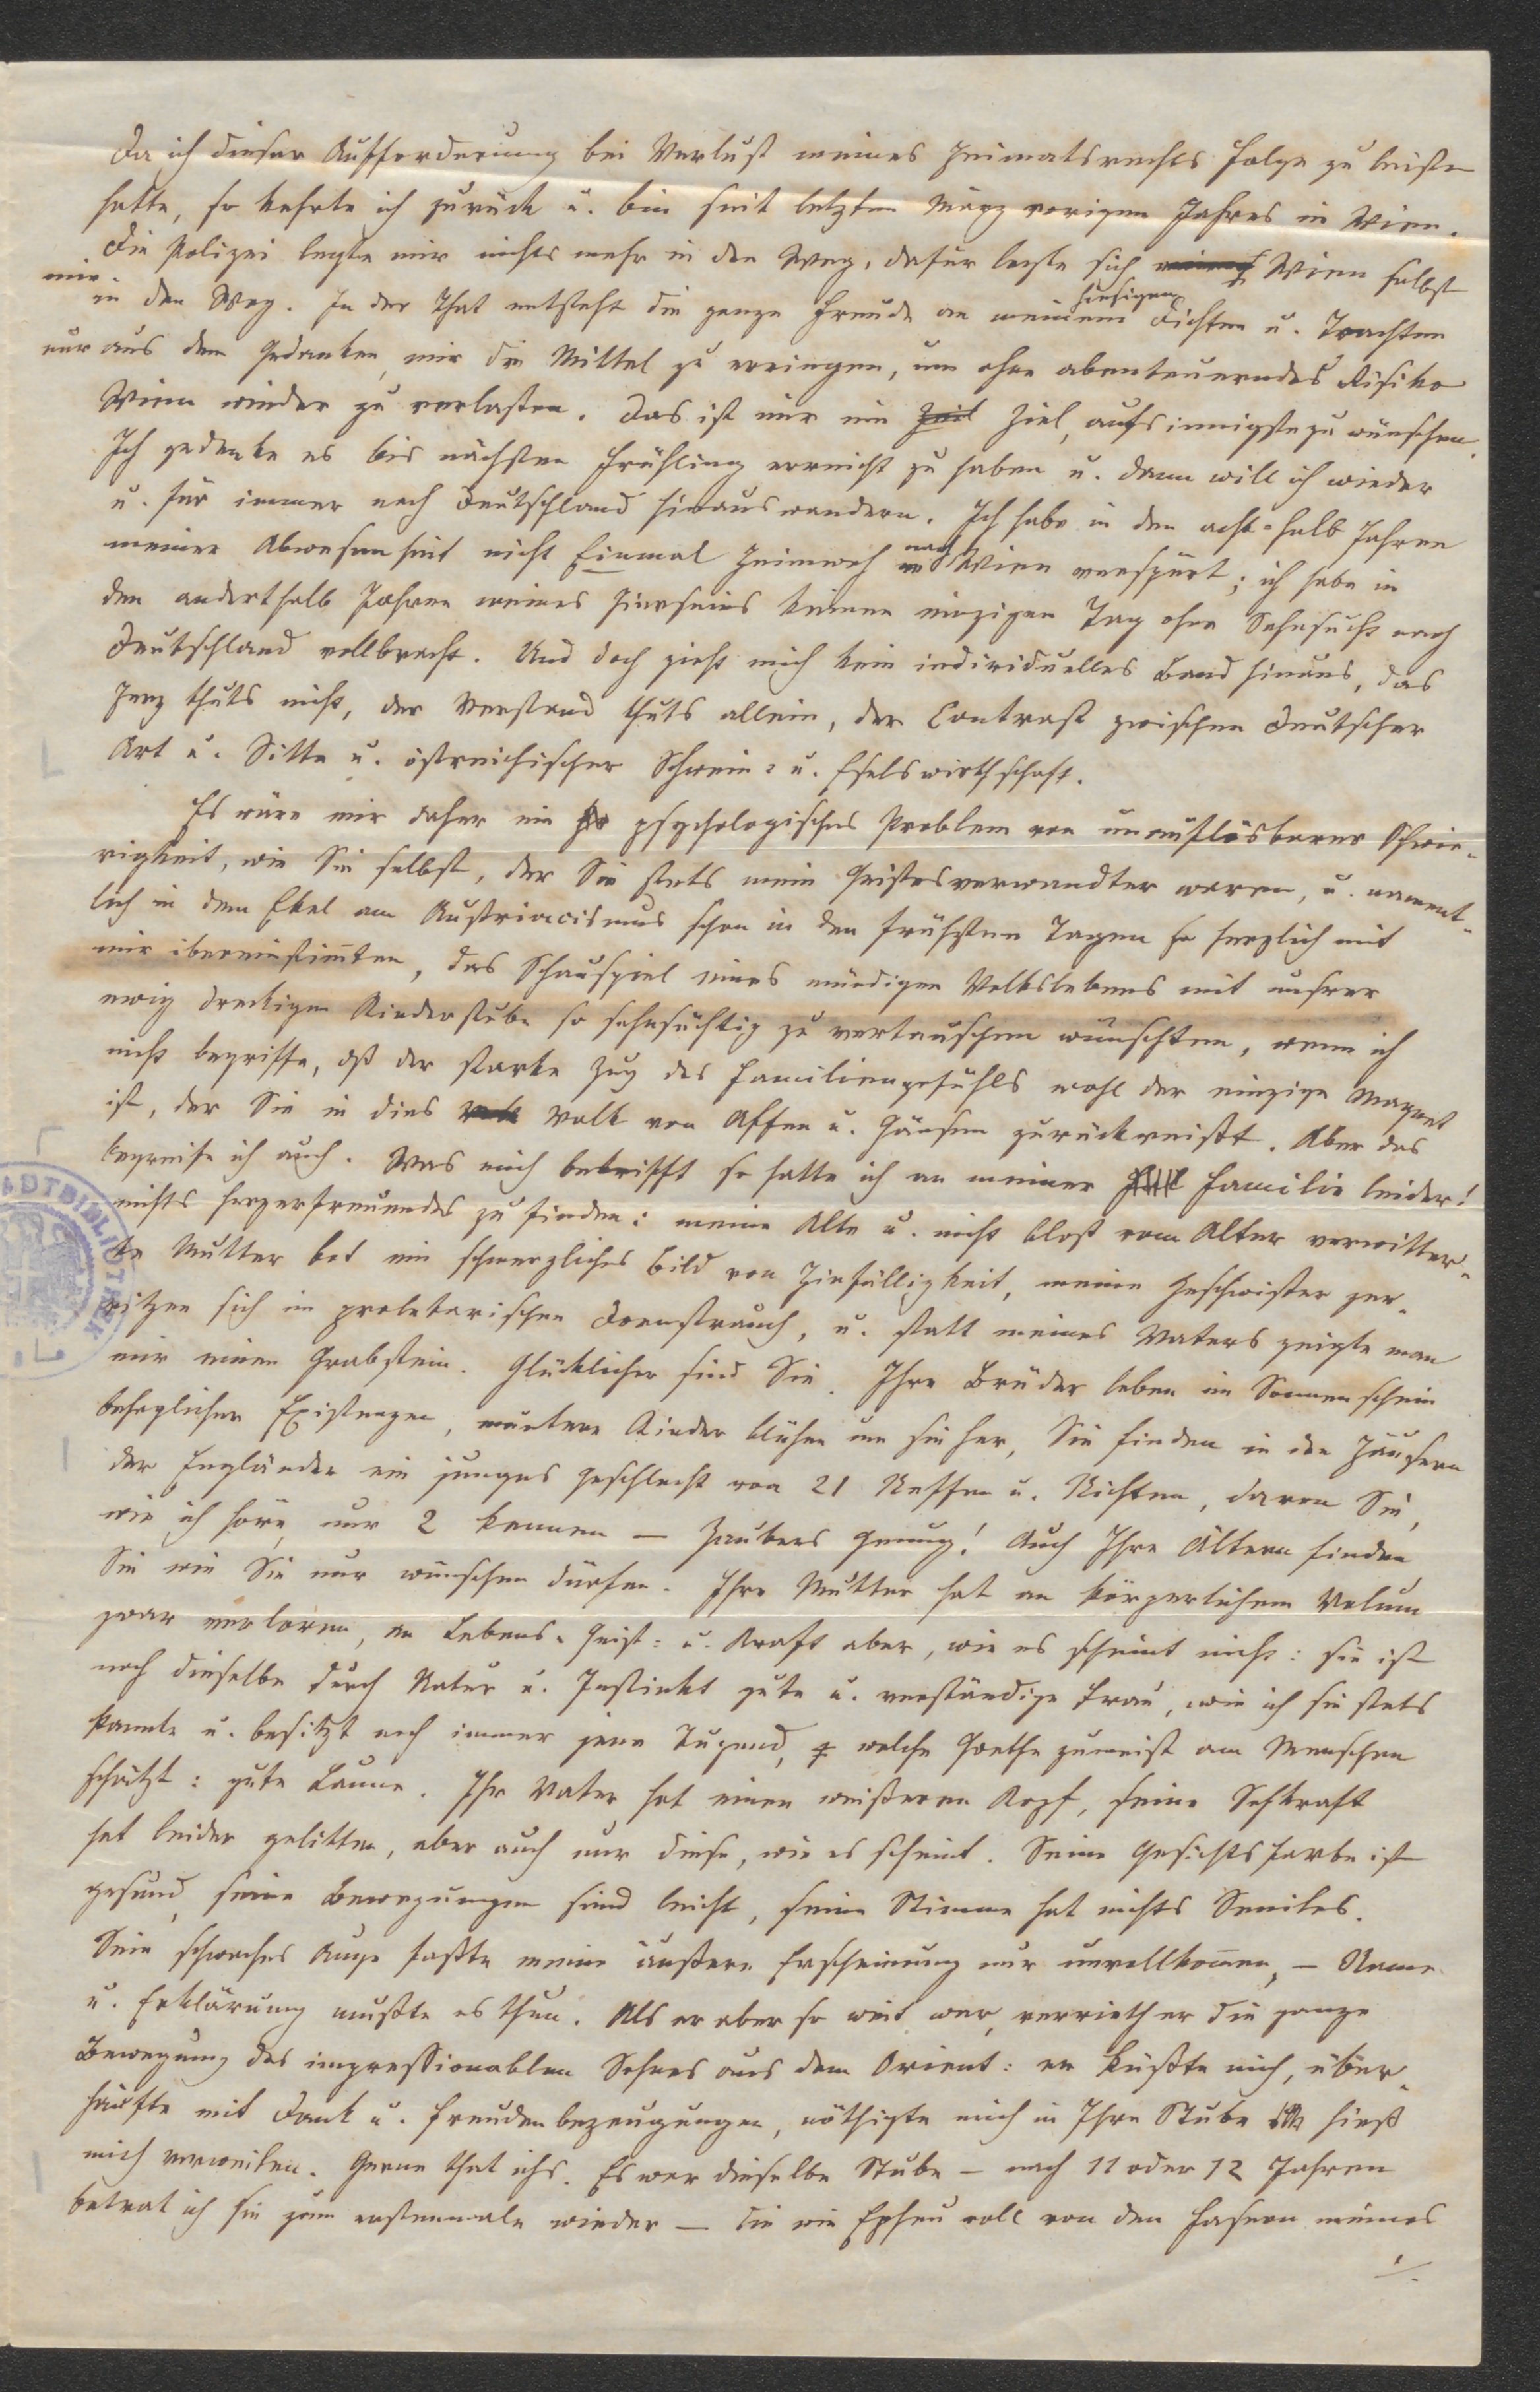 Da ich dieser Aufforderung bei Verlust meines Heimatsrechts Folge zu leisten
hatte, so kehrte ich zurück u. bin seit letzten März vorigen Jahres in Wien.
Die Polizei legte mir nichts mehr in den Weg, dafür legte sich Wien selbst
mir in den Weg. In der That entsteht die ganze Freude an meinem hiesigen Dichten u. Trachten
nur aus dem Gedanken, mir die Mittel zu erringen, um ohne abenteuerndes Risiko
Wien wieder zu verlassen. Das ist mir ein Ziel, aufs innigste zu wünschen.
Ich gedenke es bis nächsten Frühling erreicht zu haben u. dann will ich wieder
u. für immer nach Deutschland hinauswandern. Ich habe in den acht-halb Jahren
meiner Abwesenheit nicht Einmal Heimweh nach Wien verspürt; ich habe in
den anderthalb Jahren meines Hierseins keinen einzigen Tag ohne Sehnsucht nach
Deutschland vollbracht. Und doch zieht mich kein individuelles Band hinaus, das
Herz thuts nicht, der Verstand thuts allein, der Contrast zwischen deutscher
Art u. Sitte u. östreichischer Schwein- u. Eselswirthschaft.
Es wäre mir daher ein psychologisches Problem von unauflösbarer Schwie-
rigkeit, wie Sie selbst, der Sie stets mein Geistesverwandter waren, u. nament-
lich in dem Ekel am Austriacismus schon in den frühsten Tagen so herzlich mit
mir übereinstimten, das Schauspiel eines mündigen Volkslebens mit unsrer
ewig dreckigen Kinderstube so sehnsüchtig zu vertauschen wünschten, wenn ich
nicht begriffe, dß der starke Zug des Familiengefühls wohl der einzige Magnet
ist, der Sie in dies Volk von Affen u. Gänsen zurückreißt. Aber das
begreife ich auch. Was mich betrifft so hatte ich an meiner Familie leider!
nichts herzerfreuendes zu finden: meine Alte u. nicht bloß vom Alter verwitter-
te Mutter bot ein schmerzliches Bild von Hinfälligkeit, meine Geschwister zer-
ritzen sich im proletarischen Dornstrauch, u. statt meines Vaters zeigte man
mir einen Grabstein. Glücklicher sind Sie. Ihre Brüder leben im Sonnenschein
behaglicher Existenzen, muntere Kinder blühen um sie her, Sie finden in den Häusern
der Engländer ein junges Geschlecht von 21 Neffen u. Nichten, davon Sie,
wie ich höre, nur 2 kennen — Zaubers genug! Auch Ihre Ältern finden
Sie wie Sie nur wünschen dürfen. Ihre Mutter hat an körperlichem Volum
zwar verloren, an Lebens- Geist- u. Kraft aber, wie es scheint nicht: sie ist
noch dieselbe durch Natur u. Instinkt gute u. verständige Frau, wie ich sie stets
kannte u. besitzt noch immer jene Tugend, welche Goethe zumeist am Menschen
schätzt: gute Laune. Ihr Vater hat einen weißeren Kopf, seine Sehkraft
hat leider gelitten, aber auch nur diese, wie es scheint. Seine Gesichtsfarbe ist
gesund, seine Bewegungen sind leicht, seine Stimme hat nichts Seniles.
Sein schwaches Auge faßte meine äußere Erscheinung nur unvollkomen, — Name
u. Erklärung mußte es thun. Als er aber so weit war, verrieth er die ganze
Bewegung des impressionablen Sohnes aus dem Orient: er küßte mich, über-
häufte mit Dank u. Freudenbezeugungen, nöthigte mich in Ihre Stube hieß
mich verweilen. Gerne that ichs. Es war dieselbe Stube — nach 11 oder 12 Jahren
betrat ich sie zum erstenmale wieder — die wie Epheu voll von den Fasern meines
./.